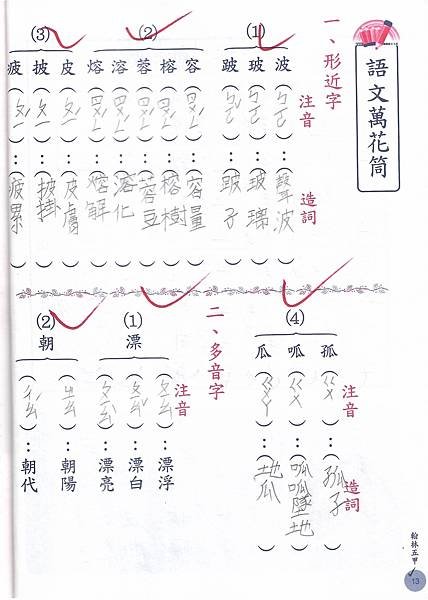 語文萬花筒
一、形近字
注音 造詞
(1)
波(ㄅㄛ):(聲波)
玻(ㄅㄛ):(玻璃)
跛(ㄅㄛˇ):(跛子)
(2)
容(ㄖㄨㄥˊ):(容量)
榕(ㄖㄨㄥˊ):(榕樹)
蓉(ㄖㄨㄥˊ):(蓉豆)
溶(ㄖㄨㄥˊ):(溶化)
熔(ㄖㄨㄥˊ):(熔解)
(3)
皮(ㄆㄧˊ):(皮膚)
披(ㄆㄧ):(披掛)
疲(ㄆㄧˊ):(疲累)
(4)
注音 造詞
孤(ㄍㄨ):(孤子)
呱(ㄍㄨ):(呱呱墜地)
瓜(ㄍㄨㄚ):(地瓜)
二、多音字
注音
(1)
漂
(ㄆㄧㄠ):漂浮
(ㄆㄧㄠˇ):漂白
(ㄆㄧㄠˋ):漂亮
(2)
朝
(ㄓㄠ):朝陽
(ㄔㄠˊ):朝代
翰林五甲
13